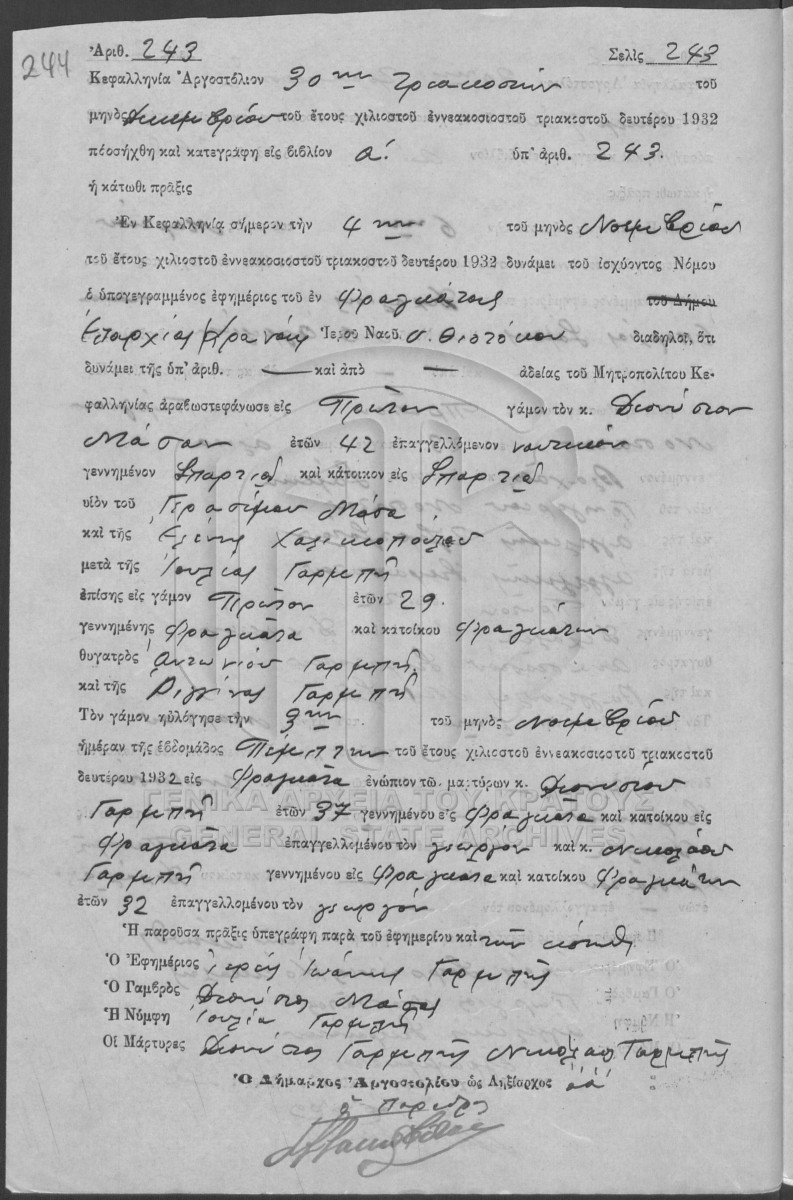 244
Ἀριθ. 243 Σελὶς 243
Κεφαλληνία Ἀργοστόλιον 30ην τριακοστὴν τοῦ
μηνὸς Δεκεμβρίου τοῦ ἔτους χιλιοστοῦ ἐννεακοσιοστοῦ τριακοστοῦ δευτέρου 1932
πέοσήχθη καὶ κατεγράφη εἰς βιβλίον α΄. ὑπ' ἀριθ. 243.
ἡ κάτωθι πρᾶξις
Ἐν Κεφαλληνίᾳ σήμερον τὴν 4ην τοῦ μηνὸς Νοεμβρίου
τοῦ ἔτους χιλιοστοῦ ἐννεακοσιοστοῦ τριακοστοῦ δευτέρου 1932 δυνάμει τοῦ ἰσχύοντος Νόμου
ὁ ὑπογεγραμμένος ἐφημέριος τοῦ ἐν Φραγκάτοις τοῦ Δήμου
Ἐπαρχίας Κραναίας Ἱεροῦ Ναοῦ Υ. Θεοτόκου διαδηλοῖ, ὅτι
δυνάμει τῆς ὑπ' ἀριθ. — καὶ ἀπὸ — ἀδείας τοῦ Μητροπολίτου Κε-
φαλληνίας ἀραβωστεφάνωσε εἰς Πρῶτον γάμον τὸν κ. Διονύσιον
Μάσαν ἐτῶν 42 ἐπαγγελλόμενον ναυτικὸν
γεννημένον Σπαρτιὰ καὶ κάτοικον εἰς Σπαρτιὰ
υἱὸν τοῦ Γερασίμου Μάσα
καὶ τῆς Ἑλένης Χαλικιοπούλου
μετὰ τῆς Ἰουλίας Γαρμπῆ
ἐπίσης εἰς γάμον Πρῶτον ἐτῶν 29.
γεννημένης Φραγκάτα καὶ κατοίκου Φραγκάτων
θυγατρὸς Ἀντωνίου Γαρμπῆ
καὶ τῆς Ρεγγίνας Γαρμπῆ
Τὸν γάμον ηὐλόγησε τὴν 3ην τοῦ μηνὸς Νοεμβρίου
ἡμέραν τῆς ἑβδομάδος Πέμπτην τοῦ ἔτους χιλιοστοῦ ἐννεακοσιοστοῦ τριακοστοῦ
δευτέρου 1932 εἰς Φραγκάτα ἐνώπιον τῶν μαρτύρων κ. Διονυσίου
Γαρμπῆ ἐτῶν 37 γεννημένου εἰς Φραγκάτα καὶ κατοίκου εἰς
Φραγκάτα ἐπαγγελλομένου τὸν γεωργὸν καὶ κ. Νικολάου
Γαρμπῆ γεννημένου εἰς Φραγκάτα καὶ κατοίκου Φραγκάτων
ἐτῶν 32 ἐπαγγελλομένου τὸν γεωργόν
Ἡ παροῦσα πρᾶξις ὑπεγράφη παρὰ τοῦ ἐφημερίου καὶ τῶν κάτωθι
Ὁ Ἐφημέριος Ἱερεὺς Ἰωάννης Γαρμπῆς
Ὁ Γαμβρὸς Διονύσιος Μάσας
Ἡ Νύμφη Ἰουλία Γαρμπῆ
Οἱ Μάρτυρες Διονύσιος Γαρμπῆς Νικόλαος Γαρμπῆς
Ὁ Δήμαρχος Ἀργοστολίου ὡς Ληξίαρχος
ὁ Πάρεδρος
ΓΕΝΙΚΑ ΑΡΧΕΙΑ ΤΟΥ ΚΡΑΤΟΥΣ
GENERAL STATE ARCHIVES